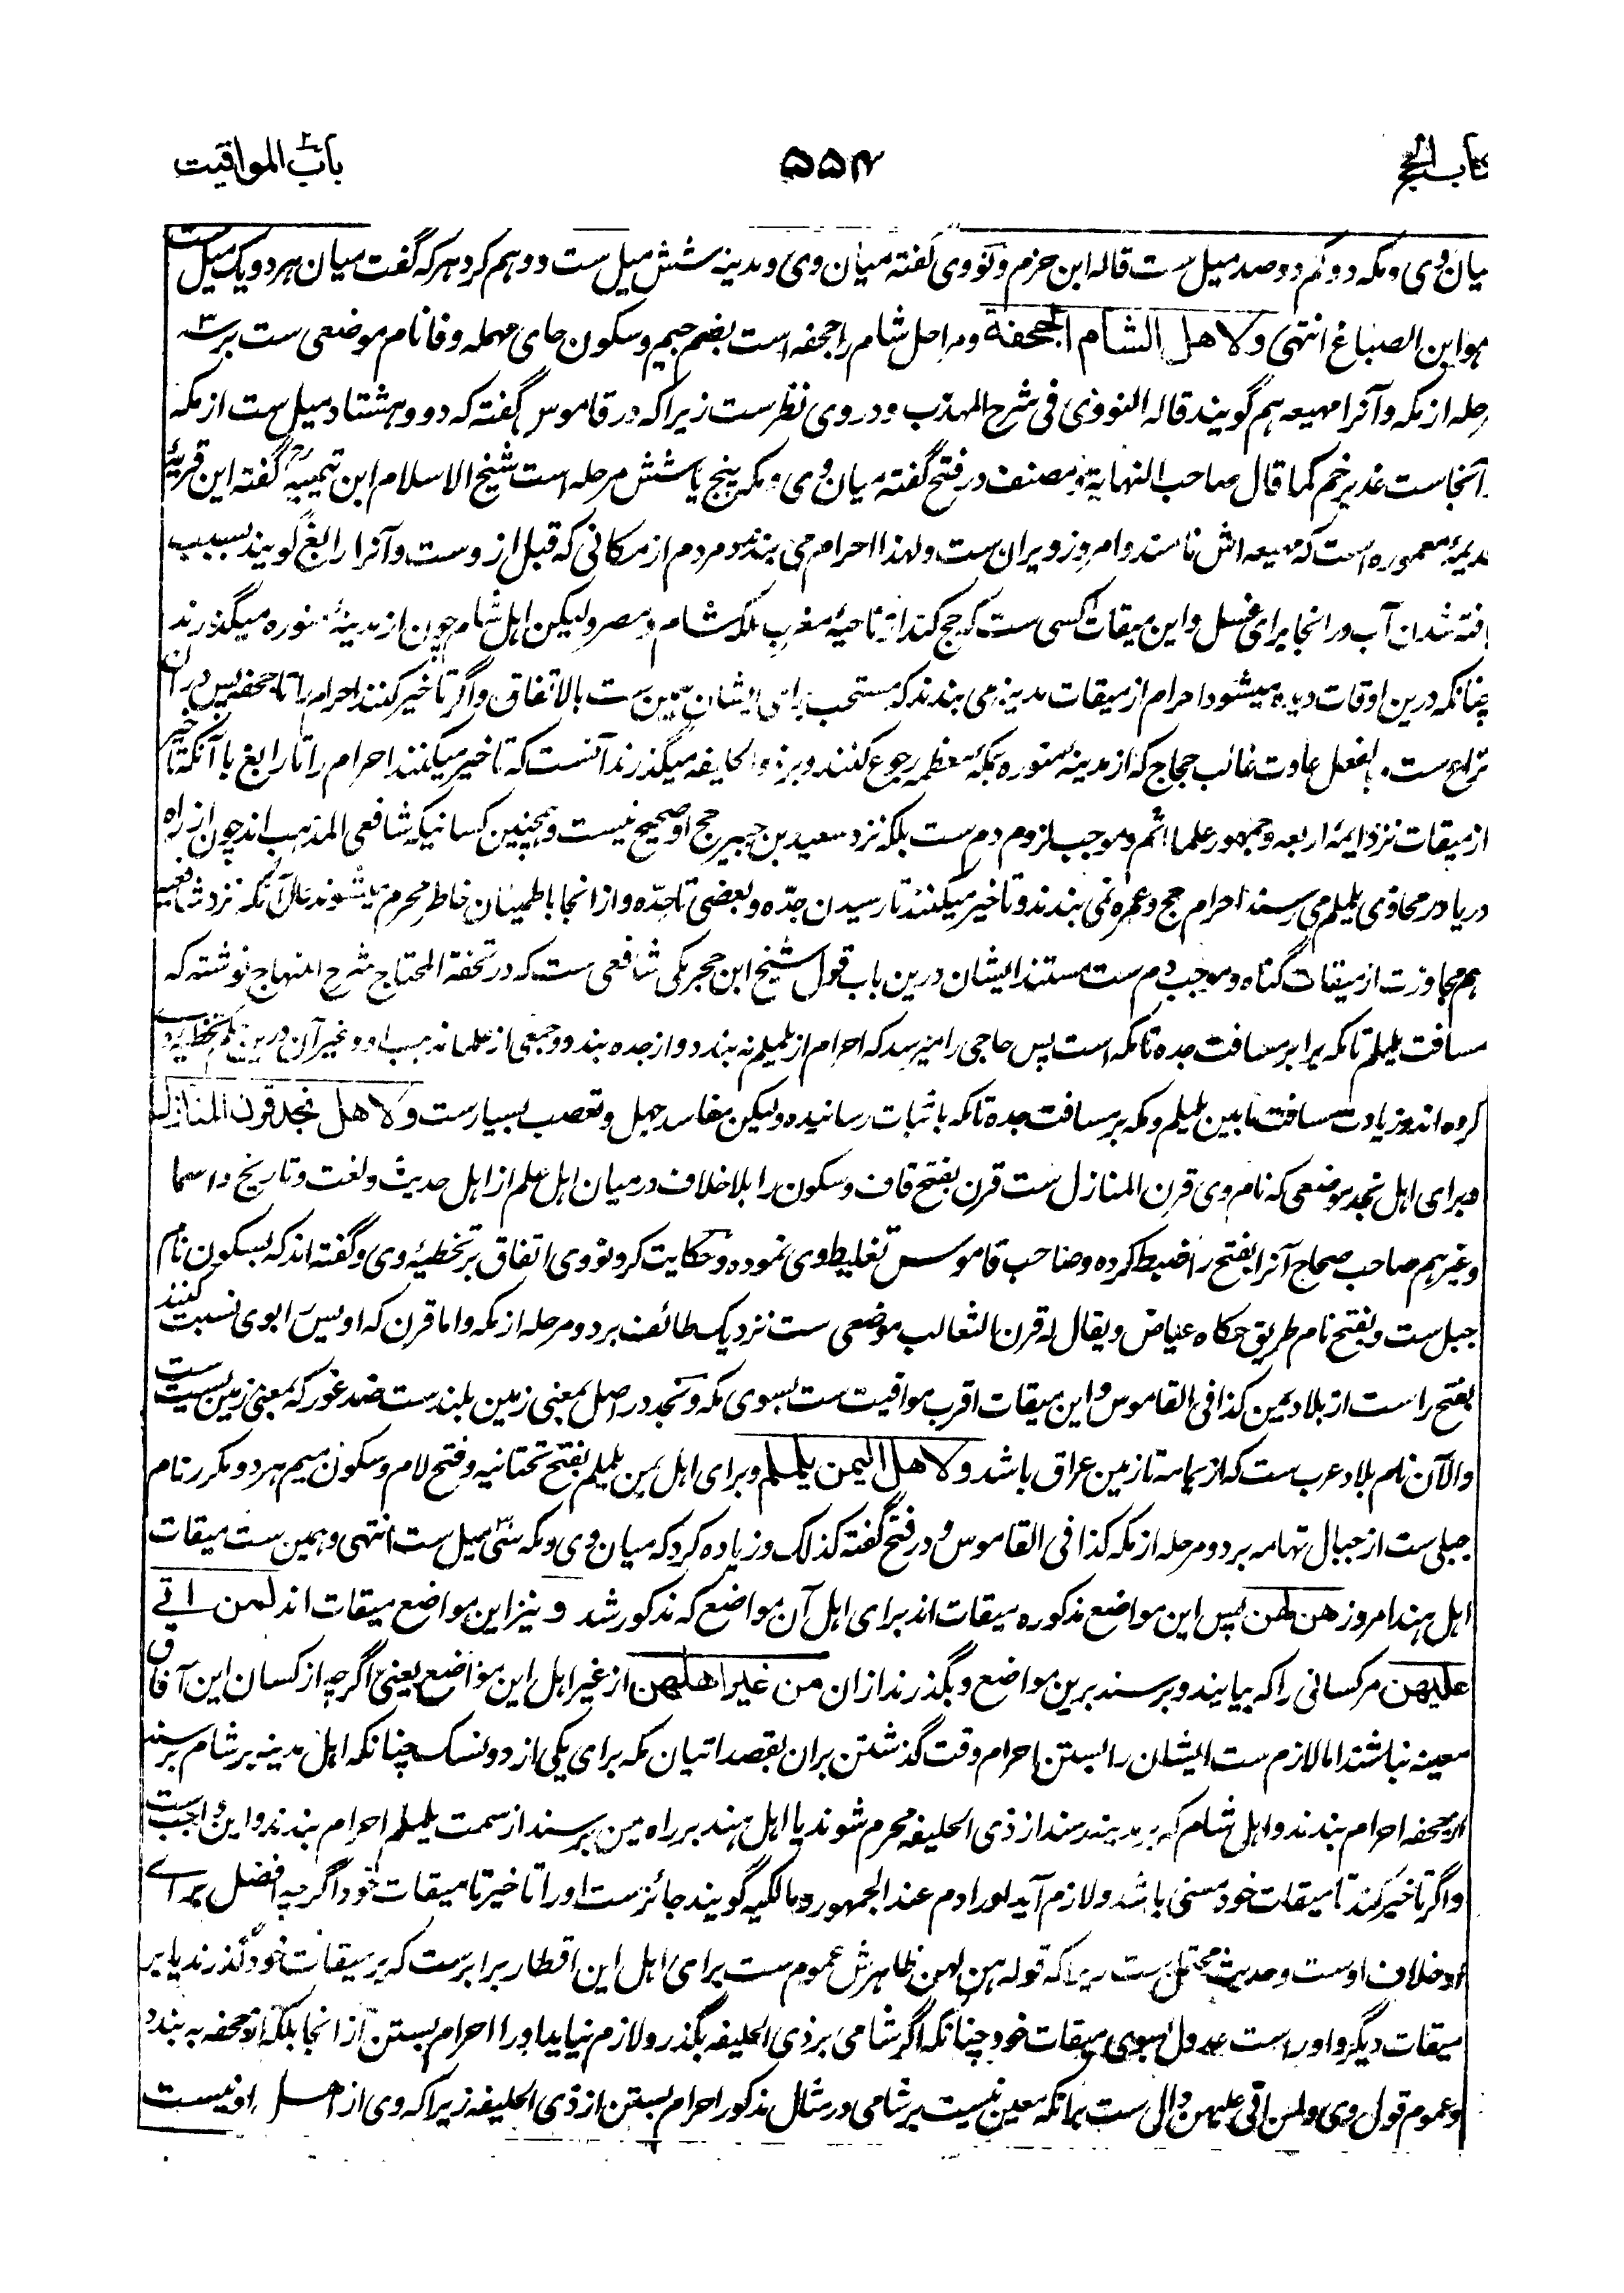 کتاب الحج ۵۵۴ باب المواقیت
میان وی و مکه دو کم دو صد میل ست قاله ابن حزم و نووی گفته میان وی و مدینه شش میل ست و وهم کرد هر که گفت میان هر دو یک میل ست
هو ابن الصباغ انتهی ولاهل الشام الجحفة و مر اهل شام را جحفه است بضم جیم و سکون حای مهمله و فا نام موضعی ست بر سه
مرحله از مکه و آنرا مهیعه هم گویند قاله النووی فی شرح المهذب و در وی نظر ست زیرا که در قاموس گفته که دو و هشتاد میل ست از مکه
و آنجاست غدیر خم کما قال صاحب النهایة و مصنف در فتح گفته میان وی و مکه پنج یا شش مرحله است شیخ الاسلام ابن تیمیه رح گفته این قریهٔ
قدیمهٔ معموره است که مهیعه اش نامند و امروز ویران ست و لهذا احرام می بندند مردم از مکانی که قبل از وست و آنرا رابغ گویند بسبب
یافته شدن آب در انجا برای غسل و این میقات کسی ست که حج کند از ناحیهٔ مغرب کشام و مصر و لیکن اهل شام چون از مدینهٔ منوره میگذرند
چنانکه درین اوقات دیده میشود احرام از میقات مدینه می بندند که مستحب برای ایشان همین ست بالاتفاق و اگر تاخیر کنند احرام را تا جحفه پس در آن
نزاع ست بالفعل عادت غالب حجاج که از مدینه منوره بمکهٔ معظمه رجوع کنند و بر ذو الحلیفه میگذرند آنست که تاخیر میکنند احرام را تا رابغ با آنکه تاخیر
از میقات نزد ایمهٔ اربعه و جمهور علما اثم و موجب لزوم دم ست بلکه نزد سعید بن جبیر حج او صحیح نیست و همچنین کسانیکه شافعی المذهب اند چون از راه
دریا در محاذی یلملم می رسند احرام حج و عمره نمی بندند و تاخیر میکنند تا رسیدن جدّه و بعضی تا حدّه و از انجا باطمینان خاطر محرم میشوند حال آنکه نزد شافعیه
هم مجاوزت از میقات گناه و موجب دم ست مستند ایشان درین باب قول شیخ ابن حجر مکی شافعی ست که در تحفة المحتاج شرح المنهاج نوشته که
مسافت یلملم تا مکه برابر مسافت جده تا مکه است پس حاجی را میرسد که احرام از یلملم نه بندد و از جده بندد و جمعی از علمای مذهب او و غیر آن درین حکم تخطیه وی
کرده اند و زیادت مسافت مابین یلملم و مکه بر مسافت جده تا مکه باثبات رسانیده ولیکن مفاسد جهل و تعصب بسیارست ولاهل نجد قرن المنازل
و برای اهل نجد موضعی که نام وی قرن المنازل ست قرن بفتح قاف و سکون را بلا خلاف در میان اهل علم از اهل حدیث و لغت و تاریخ و اسما
و غیرهم صاحب صحاح آنرا بفتح را ضبط کرده و صاحب قاموس تغلیط وی نموده و حکایت کرد نووی اتفاق بر تخطیهٔ وی و گفته اند که بسکون نام
جبل ست و بفتح نام طریق حکاه عیاض و یقال له قرن الثعالب موضعی ست نزدیک طائف بر دو مرحله از مکه و اما قرن که اویس را بوی نسبت کنند
بفتح راست از بلاد یمن کذا فی القاموس و این میقات اقرب مواقیت ست بسوی مکه و نجد در اصل بمعنی زمین بلند ست ضد غور که بمعنی زمین پست ست
والآن نام بلاد عرب ست که از یمامه تا زمین عراق باشد ولاهل الیمن یلملم و برای اهل یمن یلملم بفتح تحتانیه و فتح لام و سکون میم هر دو مکرر نام
جبلی ست از جبال تهامه بر دو مرحله از مکه کذا فی القاموس و در فتح گفته کذلک و زیاده کرد که میان وی و مکه سی میل ست انتهی و همین ست میقات
اهل هند امروز هن لهن پس این مواضع مذکوره میقات اند برای اهل آن مواضع که مذکور شد و نیز این مواضع میقات اند لمن اتی
علیهن مر کسانی را که بیایند و برسند برین مواضع و بگذرند از ان من غیر اهلهن از غیر اهل این مواضع یعنی اگرچه از کسان این آفاق
معینه نباشند اما لازم ست ایشان را بستن احرام وقت گذشتن بران بقصد اتیان مکه برای یکی از دو نسک چنانکه اهل مدینه بر شام برسند
از جحفه احرام بندند و اهل شام که بر مدینه رسند از ذی الحلیفه محرم شوند یا اهل هند بر راه یمن برسند از سمت یلملم احرام بندند و این واجب ست
و اگر تاخیر کند تا میقات خود مسئ باشد و لازم آید او را دم عند الجمهور و مالکیه گویند جائز ست او را تاخیر تا میقات خود اگرچه افضل برای
او خلاف اوست و حدیث محتمل ست زیرا که قوله هن لهن ظاهرش عموم ست برای اهل این اقطار برابرست که بر میقات خود گذرند یا بر
میقات دیگر و او راست عدول بسوی میقات خود چنانکه اگر شامی بر ذی الحلیفه بگذرد لازم نیاید او را احرام بستن از انجا بلکه از جحفه به بندد
و عموم قول وی و لمن اتی علیهن دال ست برانکه معین نیست بر شامی در مثال مذکور احرام بستن از ذی الحلیفه زیرا که وی از اهل او نیست